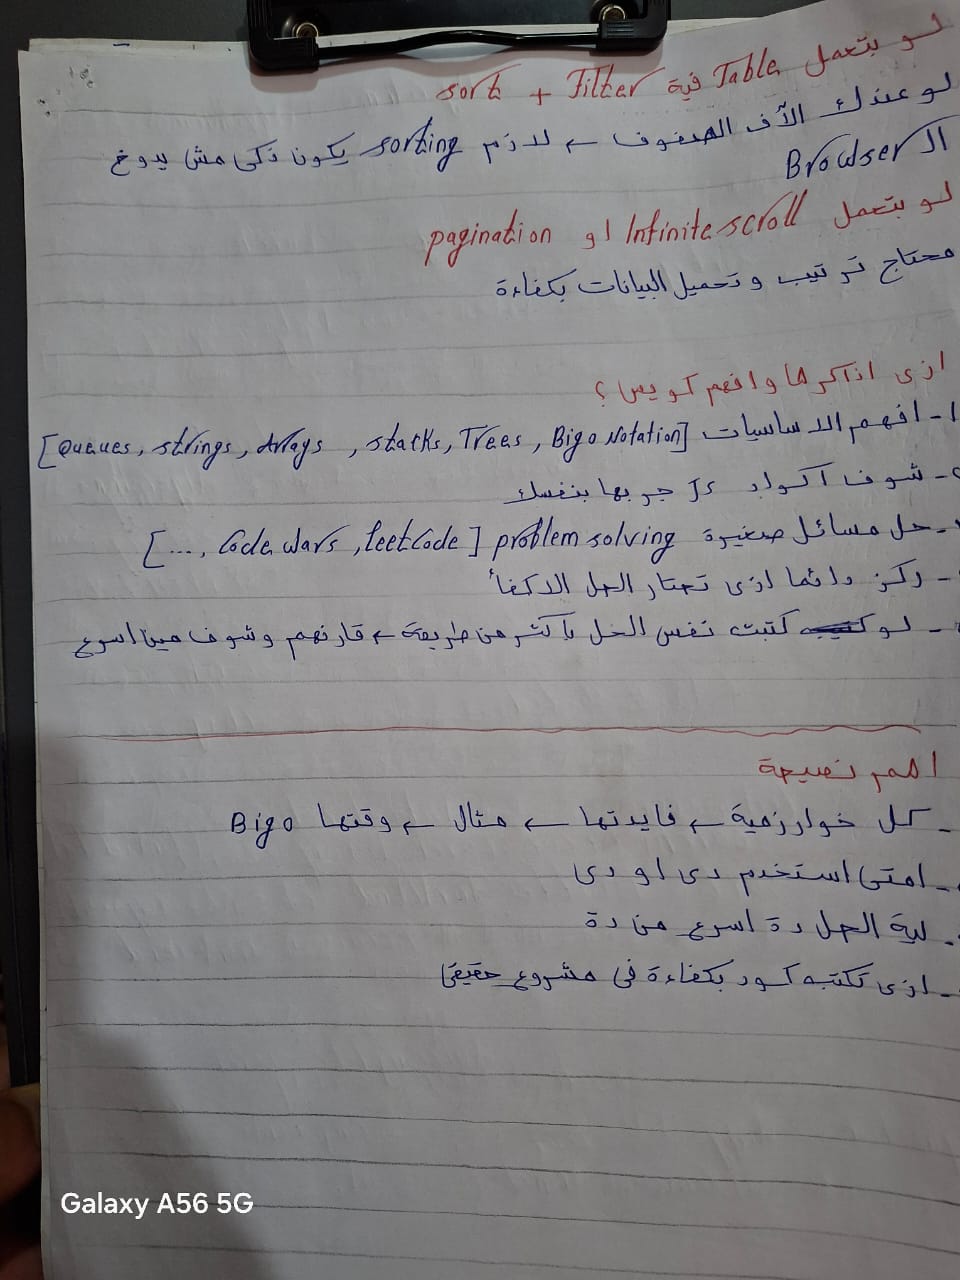 لو بتعمل Table فية Filter + sort
لو عندك الآف الصفوف ← لازم sorting يكون ذكى مش يدوخ
الـ Browser
لو بتعمل Infinite scroll او pagination
محتاج ترتيب و تحميل البيانات بكفاءة
ازى اذاكرها وافهم كويس ؟
1- افهم الاساسيات [Queues, strings, Arrays , stacks, Trees , Bigo Notation]
- شوف اكواد JS جربها بنفسك
- حل مسائل صغيرة problem solving [..., Code wars , leetCode ]
- ركز دائما ازى تختار الحل الاكفأ
- لو كتبت نفس الحل بأكتر من طريقة ← قارنهم وشوف مين اسرع
اهم نصيحة
- كل خوارزمية ← فايدتها ← مثال ← وقتها Bigo
- امتى استخدم دى او دى
- لية الحل دة اسرع من دة
- ازى تكتب كود بكفاءة فى مشروع حقيقى
Galaxy A56 5G